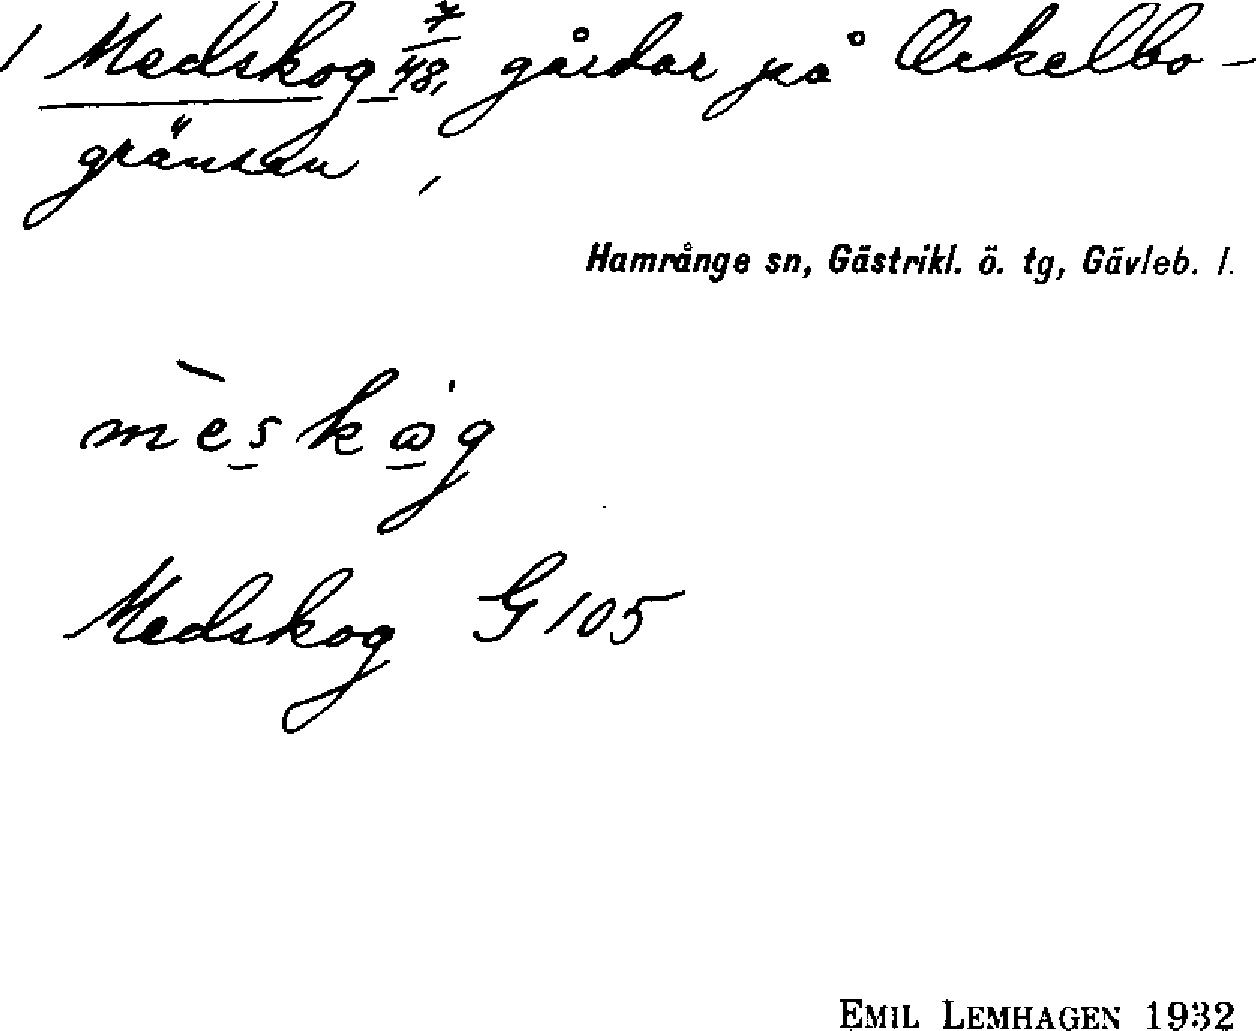 / Medskog 7/48, gårdar på Ockelbo-
gränsen /
Hamrånge sn, Gästrikl. ö. tg, Gävleb. l.
mèskog
Medskog G 105
EMIL LEMHAGEN 1932